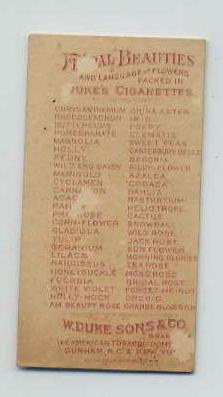 FLORAL BEAUTIES
AND LANGUAGE OF FLOWERS
PACKED IN
DUKE'S CIGARETTES.
CHRYSANTHEMUM CHINA ASTER
RHODODENDRON IRIS
BUTTERCUPS POPPY
POMEGRANATE CLEMATIS
MAGNOLIA SWEET PEAS
HOLLY CANTERBURY BELLS
PEONY BEGONIA
WILD ENG. DAISY GILLY-FLOWER
MARIGOLD AZALEA
CYCLAMEN COBAEA
CARNATION DAHLIA
ACAC NASTURTIUM
PAN HELIOTROPE
PRI ROSE CACTILE
CORN-FLOWER SNOWBALL
GLADIOLA WILD ROSE
TULIP JACK ROSE
GERANIUM SUN FLOWER
LILACS MORNING GLORIES
NARCISSUS TEA ROSE
HONEYSUCKLE MOSS ROSE
FUCHSIA BRIDAL ROSE
WHITE VIOLET FORGET-ME-NOT
HOLLY-HOCK ORCHID
AM. BEAUTY ROSE
W. DUKE SONS & CO.
BRAN
THE AMERICAN TOBACCO
DURHAM, N.C. & NEW YO